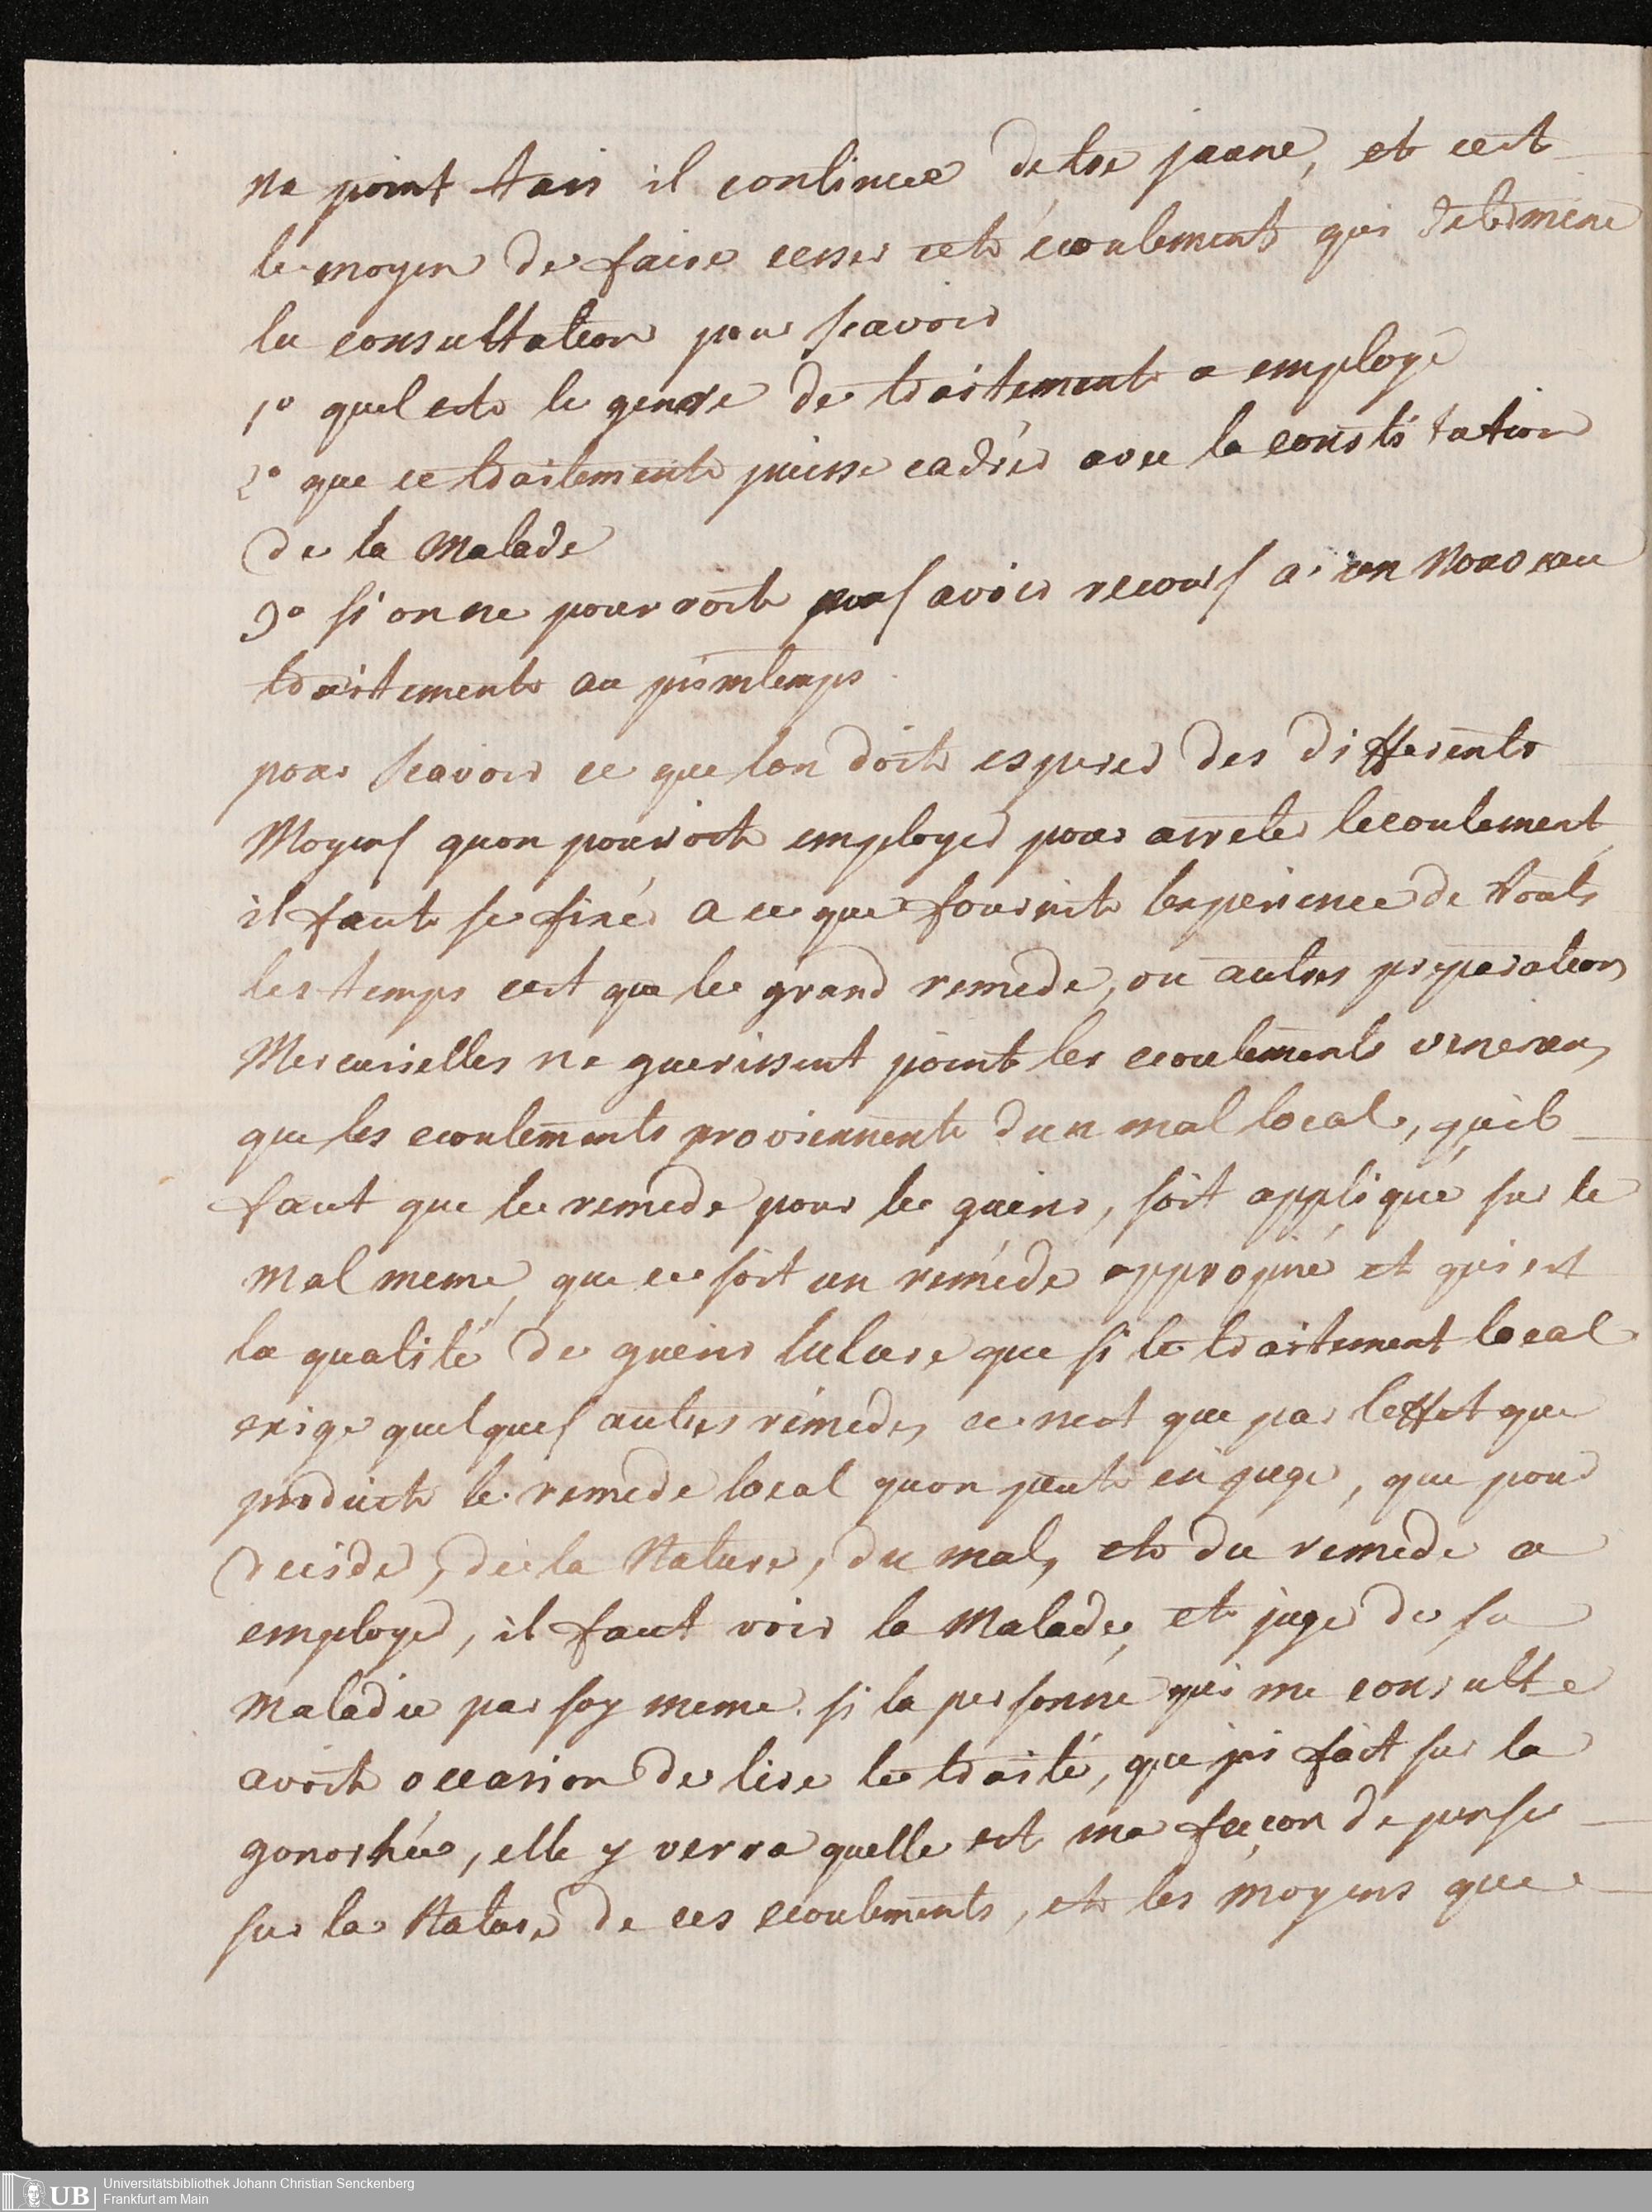 na point tari il continue detre jaune, et cest
le moyen de faire cesser cet écoulement qui determine
la consultation pour scavoir
1º quel est le genre de traitement a employé
2º que ce traitement puisse cadrer avec la constitution
de la Malade
3º si on ne pourroit pas avoir recours a un Nouveau
traitement au printemps
pour scavoir ce que lon doit esperer des differents
Moyens quon pourroit employer pour arreter lecoulement
il faut se fixer a ce que fournit lexperience de touts
les temps cest que le grand remede, ou autres preparations
Mercurielles ne guerissent point les ecoulements veneriens
que les ecoulements proviennent dun mal local, quil
faut que le remede pour le guerir, soit appliqué sur le
mal meme, que ce soit un reméde approprié et qui est
la qualité de guerir lulcere que si le traitement local
exige quelques autres rémedes, ce nest que par leffet que
produit le remede local quon peut en juge, que pour
decider, de la Nature, du mal, et du remede a
employer, il faut voir la Malade, et juger de sa
maladie par soy meme. si la personne qui me consulte
avoit occasion de lire le traité, que jai fait sur la
gonorhée, elle y verra quelle est ma façon de penser
sur la Nature de ces ecoulements, et les moyens que
Universitätsbibliothek Johann Christian Senckenberg
Frankfurt am Main
UB